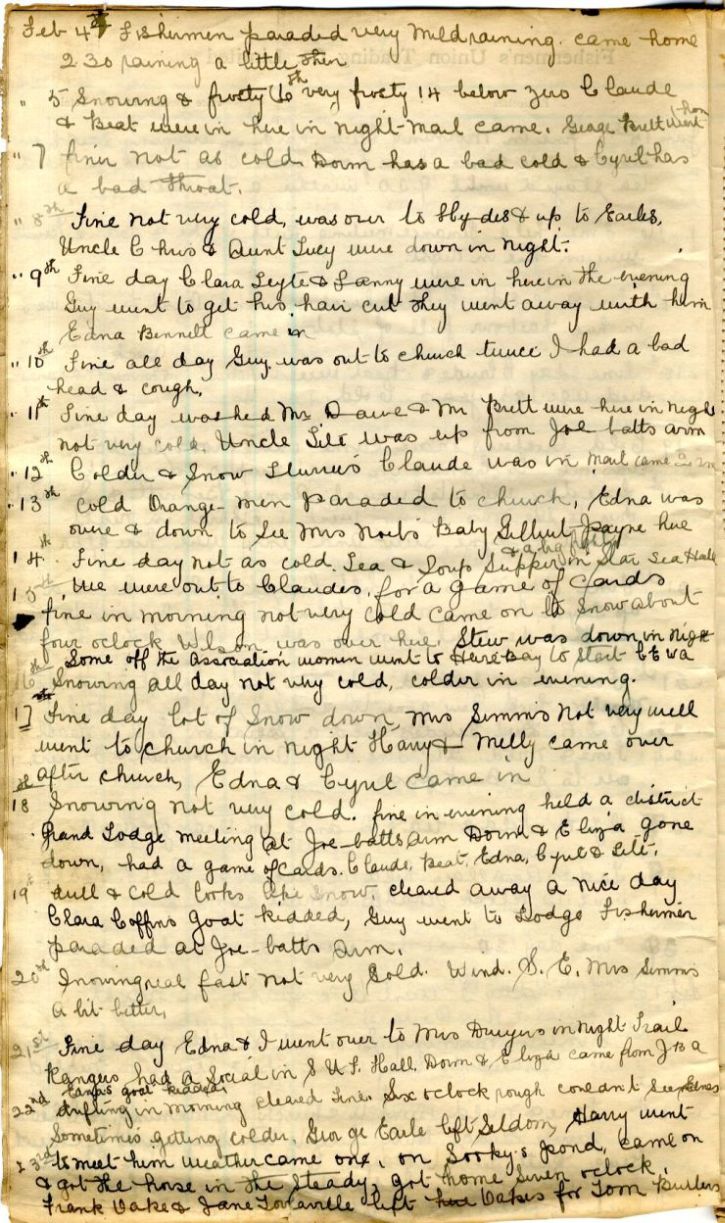 Feb 4th Fishermen paraded very mild raining. came home
2 30 raining a little then
" 5 Snowing & frosty 6th very frosty 14 below zero Claude
& Beat were in here in night mail came. George Brett went hom
" 7 finer not as cold. Dorm has a bad cold & Cyril has
a bad throat.
" 8th Fine not very cold, was over to Hydes & up to Earles,
Uncle Chris & Aunt Lucy were down in night.
" 9th Fine day Clara Leyte & Fanny were in here in the evening
Guy went to get his hair cut they went away with him
Edna Bennett came in
" 10th Fine all day Guy was out to church twice I had a bad
head & cough,
" 11th Fine day washed Mr. Dawe & Mr Brett were here in night
not very cold. Uncle Lile was up from Joe batts arm
" 12th Colder & Snow Flurries Claude was in mail came
" 13th cold Orange-men paraded to church, Edna was
over & down to See Mrs Noels Baby Gilbert Payne here
& a big party
14th Fine day not as cold. Tea & Soup Supper in Star Sea Hall
15th We were out to Claudes, for a game of cards
fine in morning not very cold came on to Snow about
four oclock Wilson was over here. Stew was down in night
Some off the association women went to Hare Bay to start C E W A
16th Snowing all day not very cold, colder in evening.
17 Fine day lot of Snow down, Mrs Simms not very well
went to church in night Harry & Melly came over
after church, Edna & Cyril came in
18th Snowing not very cold. fine in evening held a district
Grand Lodge meeting at Joe-batts arm Dorm & Eliza gone
down, had a game of cards. Claude, Beat, Edna, Cyril & Lile.
19th dull & cold looks like snow. cleared away a nice day
Clara Coffins goat kidded, Guy went to Lodge Fishermen
paraded at Joe-batts arm.
20th Snowing real fast not very Cold. Wind. S. E. Mrs Simms
a bit better,
21st Fine day Edna & I went over to Mrs Dwyers in night Trail
Rangers had a Social in S U F Hall. Dorm & Eliza came from J B a
Ednas goat kidded,
22nd drifting in morning cleared fine. Six oclock rough couldn't see Ednas
Sometimes getting colder. George Earle left Seldom, Harry went
23rd to meet him weather came on, on Sooky's pond, came on
& got the horse in the Steady, got home Seven oclock.
Frank Oake & Jane Torraville left here Oakes for Tom Butlers